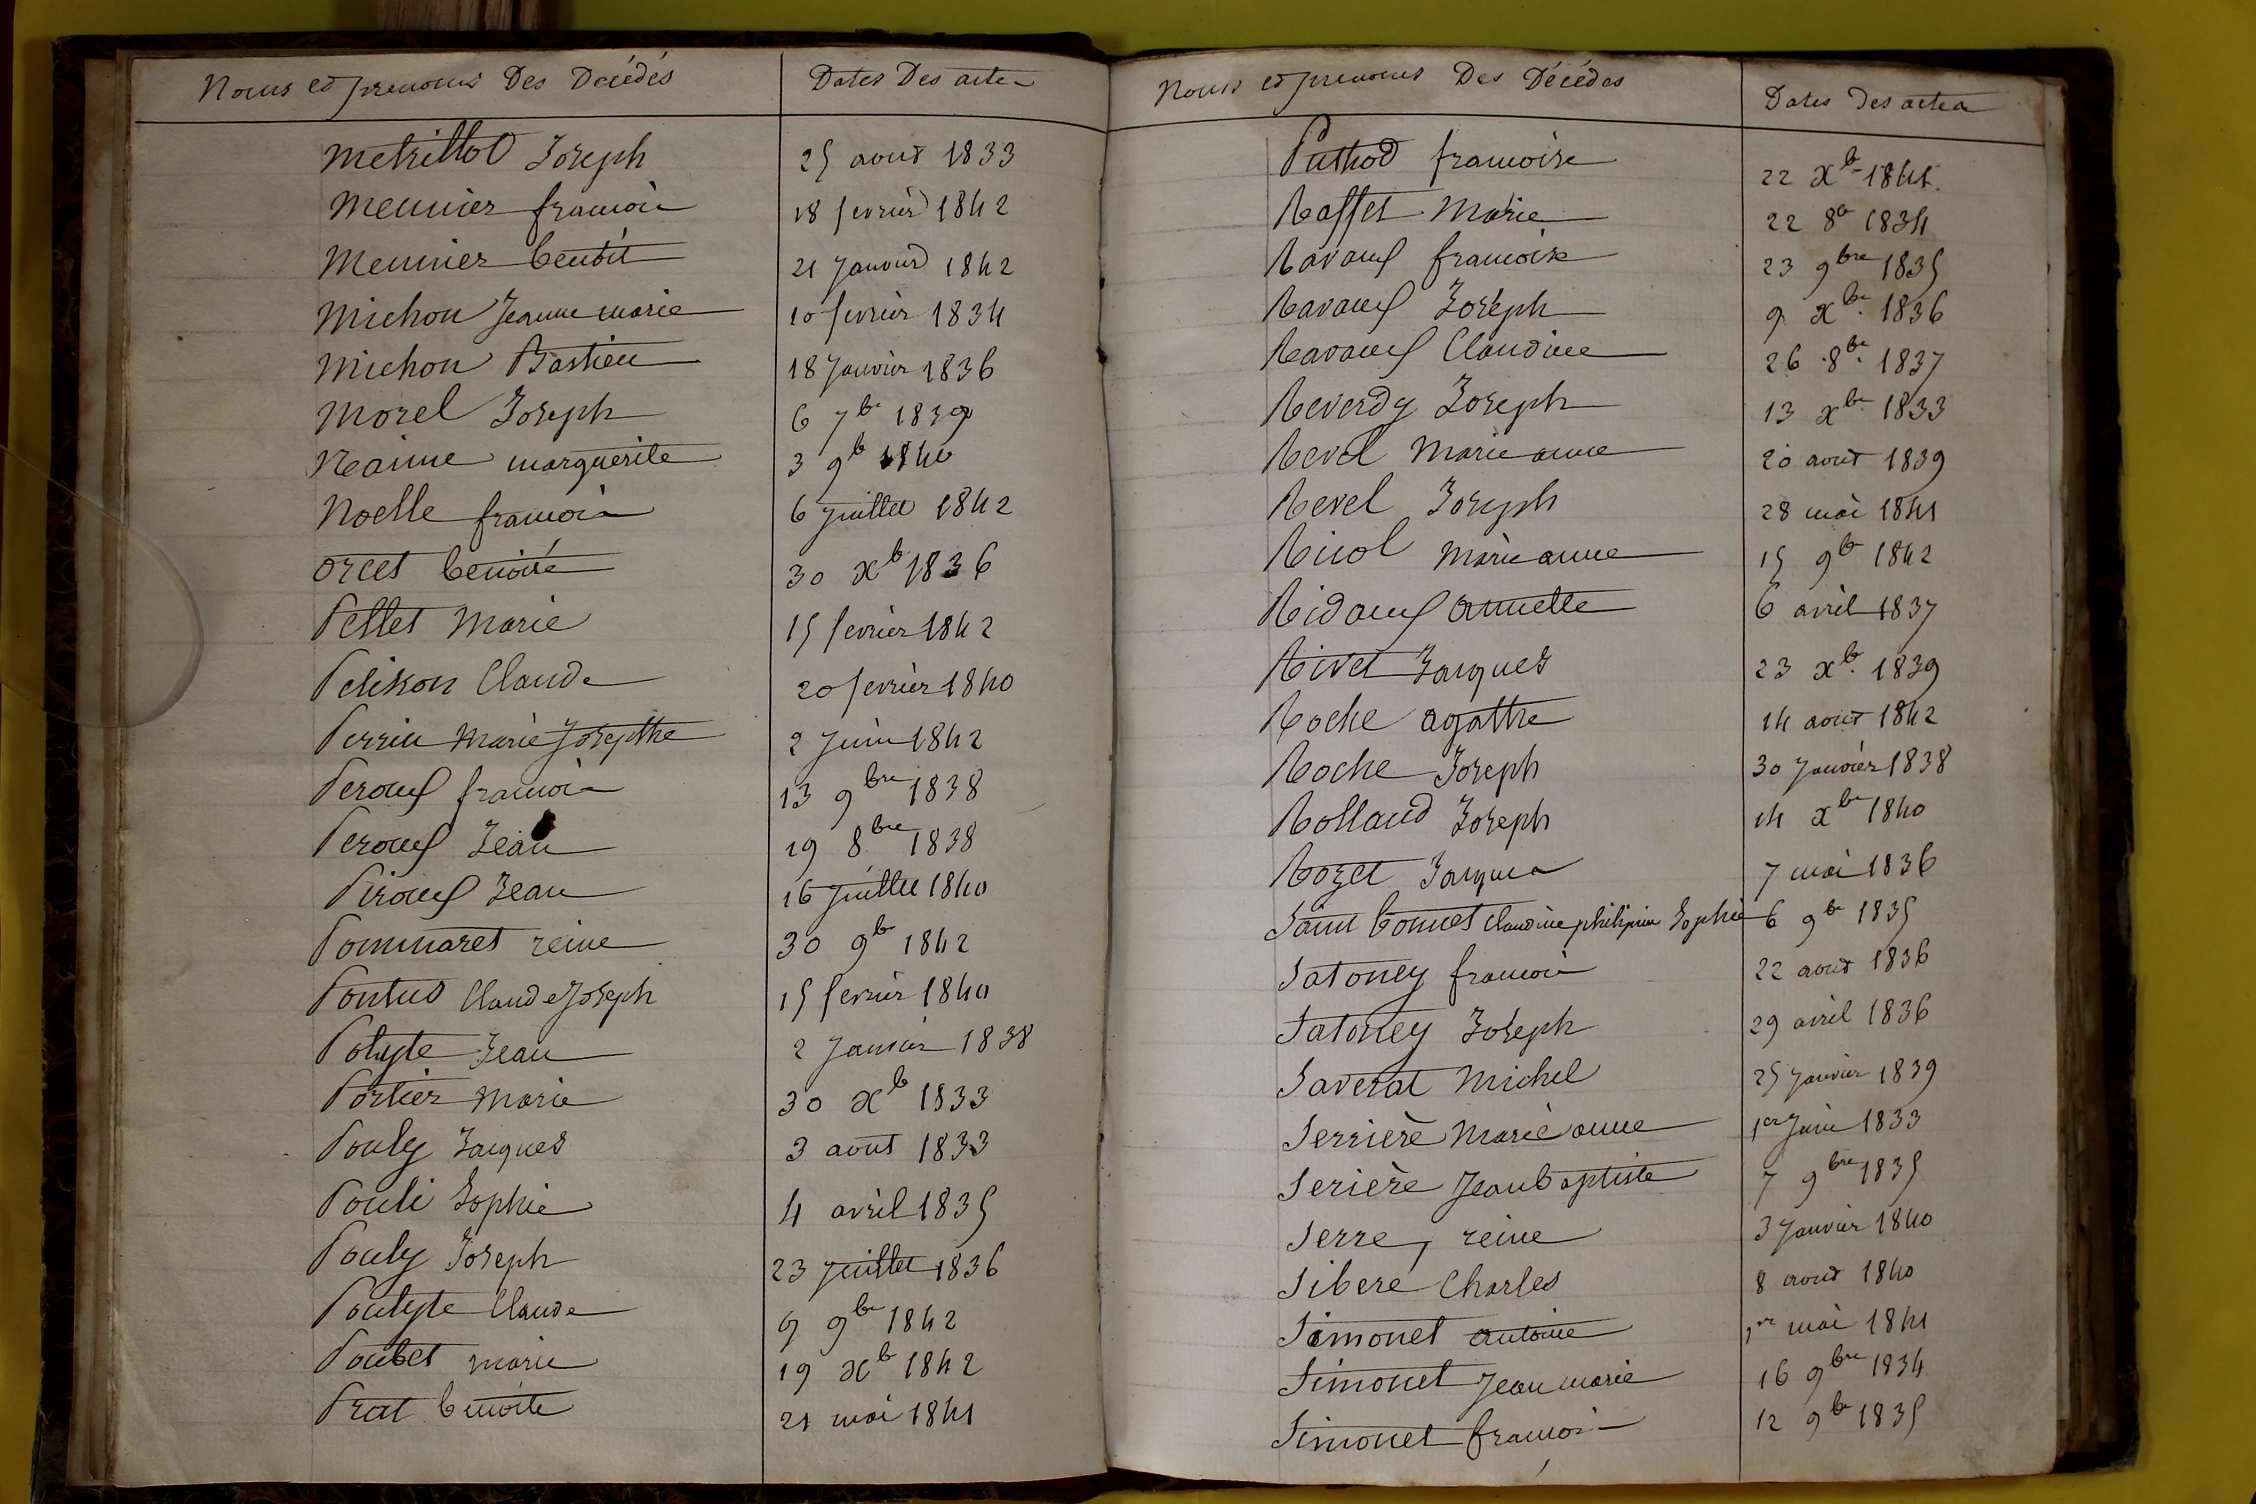 Noms et prenoms Des Décédés Dates Des actes
Metrillot Joseph 25 aout 1833
Meunier francois 18 fevrier 1842
Meunier benoit 21 Janvier 1842
Michon Jeanne marie 10 fevrier 1834
Michon Bastien 18 Janvier 1836
Morel Joseph 6 7b. 1839
Naime marguerite 3 9b 1840
Noelle francois 6 Juillet 1842
orcet benoite 30 xb 1836
Pellet Marie 15 fevrier 1842
Pelisson Claude 20 fevrier 1840
Perrin Marie Josepthe 2 Juin 1842
Peroux francois 13 9bre 1838
Peroux Jean 19 8bre 1838
Piroux Jean 16 Juillet 1840
Pommaret reine 30 9b 1842
Pontus Claude Joseph 15 fevrier 1840
Polyte Jean 2 Janvier 1838
Portier Marie 30 xb 1833
Pouly Jacques 3 aout 1833
Pouli Sophie 4 avril 1835
Pouly Joseph 23 Juillet 1836
Poulyte Claude 9 9bre 1842
Poubet marie 19 xb 1842
Prat benoite 21 mai 1841
Noms et prenoms Des Décédés Dates Des actes
Puthod francoise 22 xb 1841
Raffet Marie 22 8b 1834
Ravaux francoise 23 9bre 1835
Ravaux Joseph 9 xbre 1836
Ravaux Claudine 26 8bre 1837
Reverdy Joseph 13 xbre 1833
Revel Marie anne 20 aout 1839
Revel Joseph 28 mai 1841
Ricol Marie anne 15 9b 1842
Ridaux annette 6 avril 1837
Rivet Jacques 23 xb. 1839
Roche agathe 14 aout 1842
Roche Joseph 30 Janvier 1838
Rolland Joseph 14 xbre 1840
Rozet Jacques 7 mai 1836
Saint bonnet Claudine philipine Sophie 6 9b 1835
Satoney francois 22 aout 1836
Satoney Joseph 29 avril 1836
Saverat Michel 25 Janvier 1839
Serrière Marie anne 1er Juin 1833
Serière Jean baptiste 7 9bre 1835
Serre, reine 3 Janvier 1840
Sibere Charles 8 aout 1840
Simonet antoine 1er mai 1841
Simonet Jean marie 16 9bre 1834
Simonet francois 12 9bre 1835